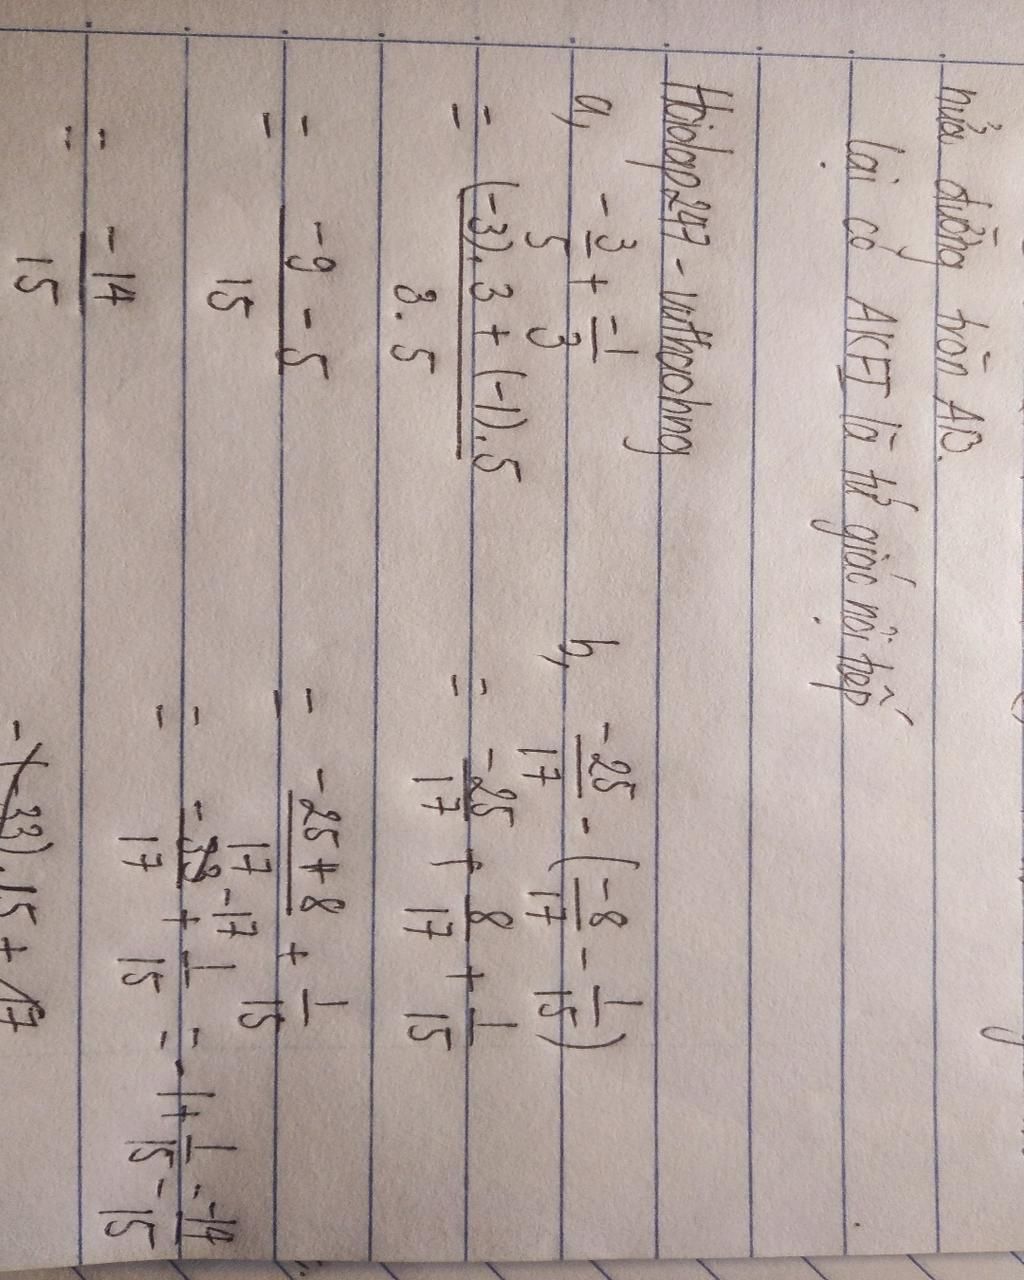 nửa đường tròn AB.
lại có AKFT là tứ giác nội tiếp
Hoidap247 - vuthaohng
a, -3/5 + -1/3
= (-3).3 + (-1).5 / 3.5
= -9 - 5 / 15
= -14 / 15
b, -25/17 - (-8/17 - 1/15)
= -25/17 + 8/17 + 1/15
= -25 + 8 / 17 + 1/15
= -17/17 + 1/15 = -1 + 1/15 = -14/15
-(-33).15 + 17